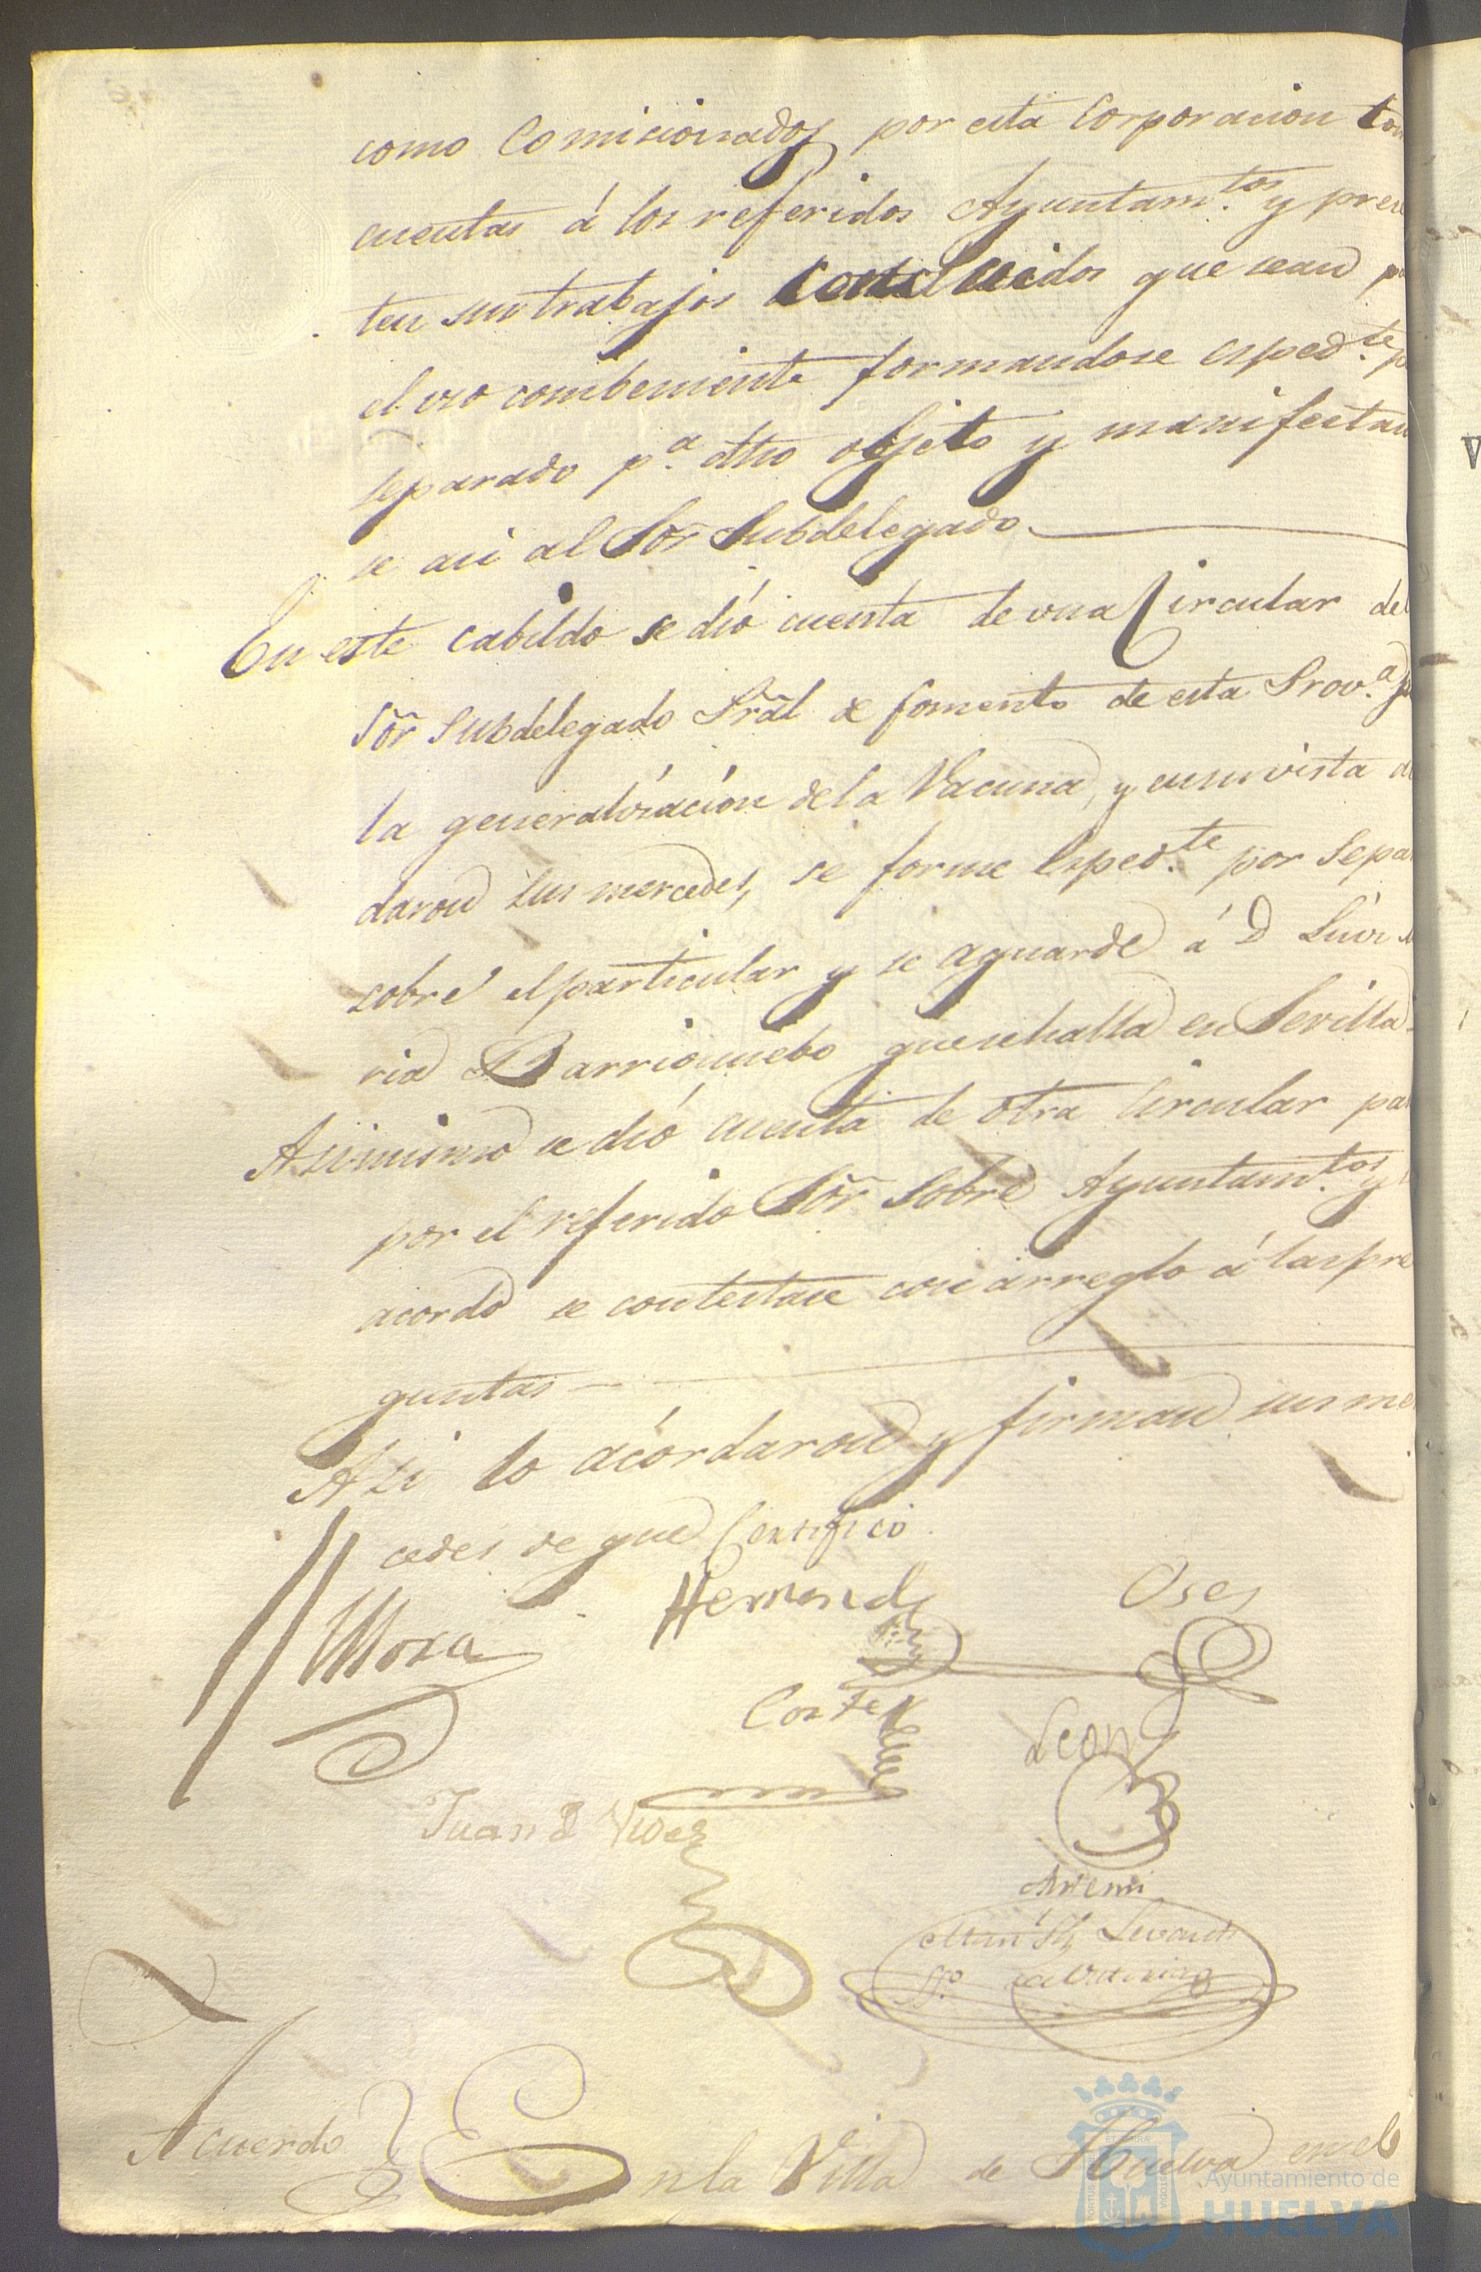 como Comicionados por esta Corporacion tom
cuentas á los referidos Ayuntam.tos y presen
ten sus trabajos concluidos que sean p
el uso combeniente formandose esped.te p
separado p.a otro objeto y manifestan
se asi al Sor Subdelegado
En este cabildo se dió cuenta de una Circular del
Sõr Subdelegado Pral de fomento de esta Prov.a
la generalizacion de la Vacuna, y en su vista
daron sus mercedes, se forme esped.te por sepa
sobre el particular y se aguarde á D Luis
ria Barrionuebo que se halla en Sevilla
Asimismo se dió cuenta de otra Circular pa
por el referido Sõr sobre Ayuntam.tos y
acordó se contestase con arreglo á las pre
guntas
Asi lo acordaron y firman sus me
cedes de que Certifico
Mora
Hernandz
Oses
Cortes
Leon
Juan
Antemi
Acuerdo
En la Villa de Huelva en el
Ayuntamiento de
HUELVA